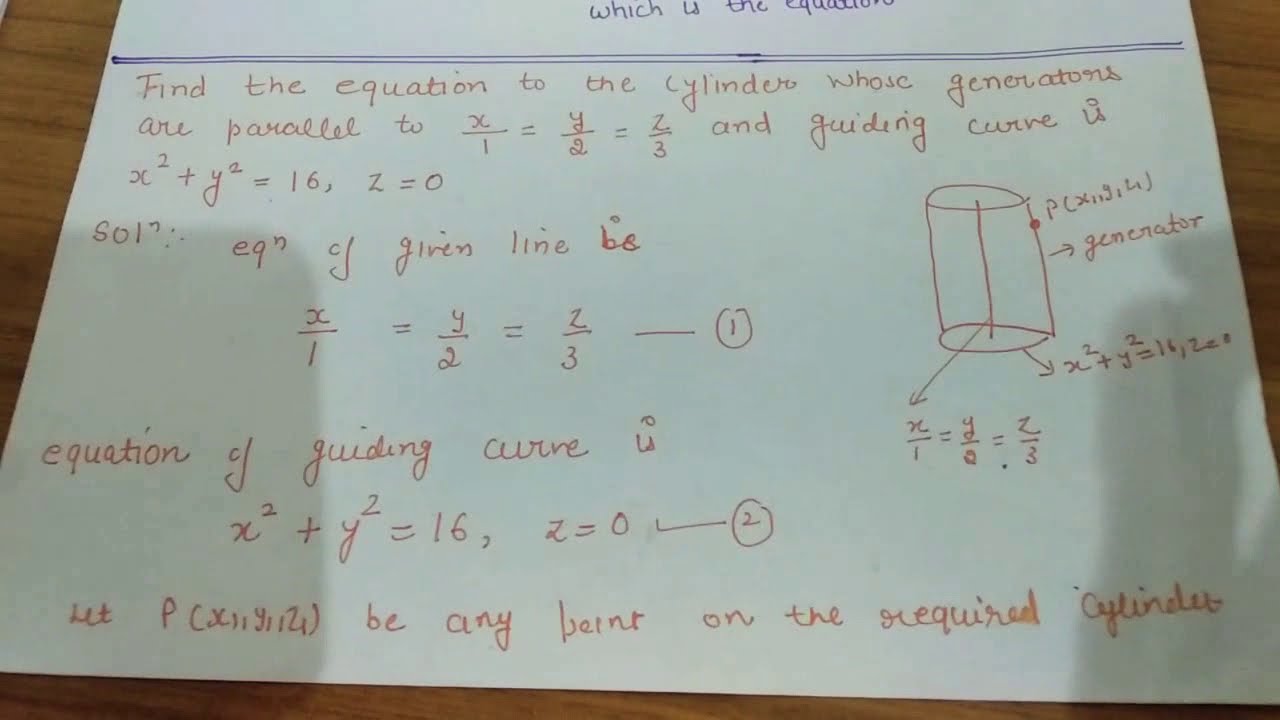 which is the equation
Find the equation to the cylinder whose generators
are parallel to x/1 = y/2 = z/3 and guiding curve is
x² + y² = 16, z = 0
Solⁿ:-
eqⁿ of given line be
x/1 = y/2 = z/3 — ①
P(x₁,y₁,z₁)
→ generator
x²+y²=16, z=0
x/1 = y/2 = z/3
equation of guiding curve is
x² + y² = 16, z = 0 — ②
Let P(x₁,y₁,z₁) be any point on the required cylinder